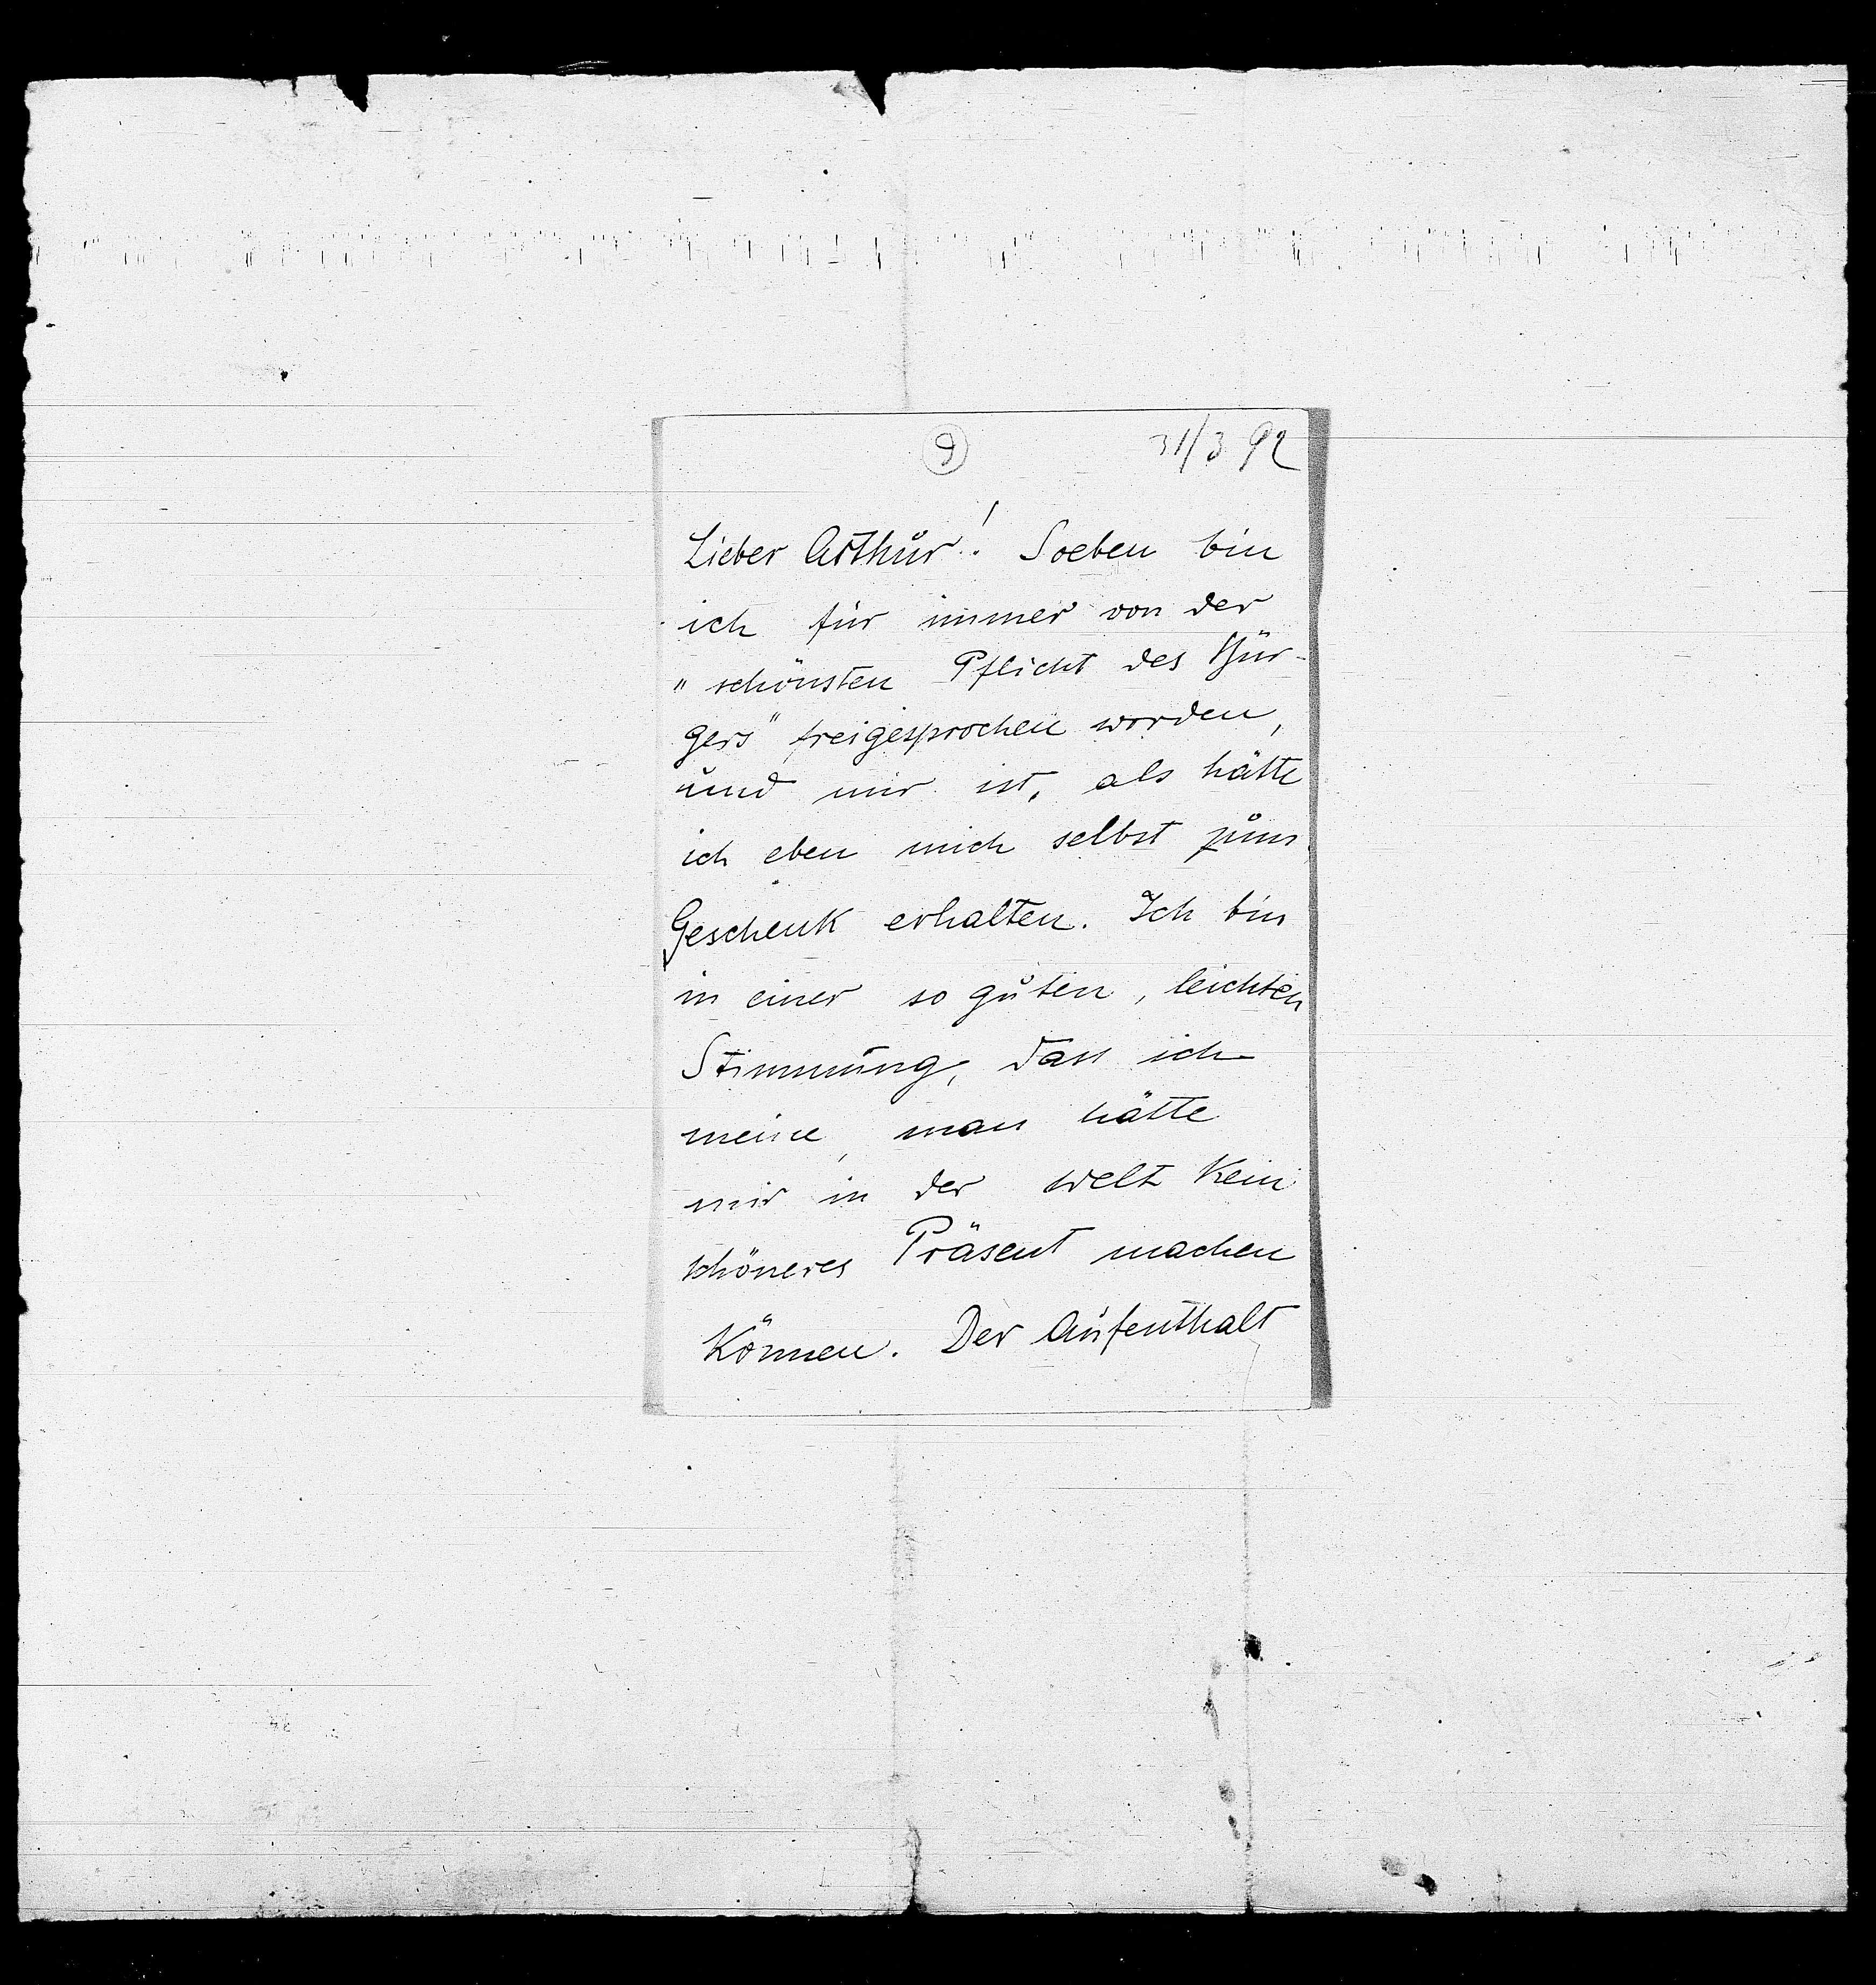 9 31/3 92
Lieber Arthur! Soeben bin
ich für immer von der
"schönsten Pflicht des Bür-
gers" freigesprochen worden,
und mir ist, als hätte
ich eben mich selbst zum
Geschenk erhalten. Ich bin
in einer so guten, leichten
Stimmung, dass ich
meine, man hätte
mir in der Welt kein
schöneres Präsent machen
können. Der Aufenthalt